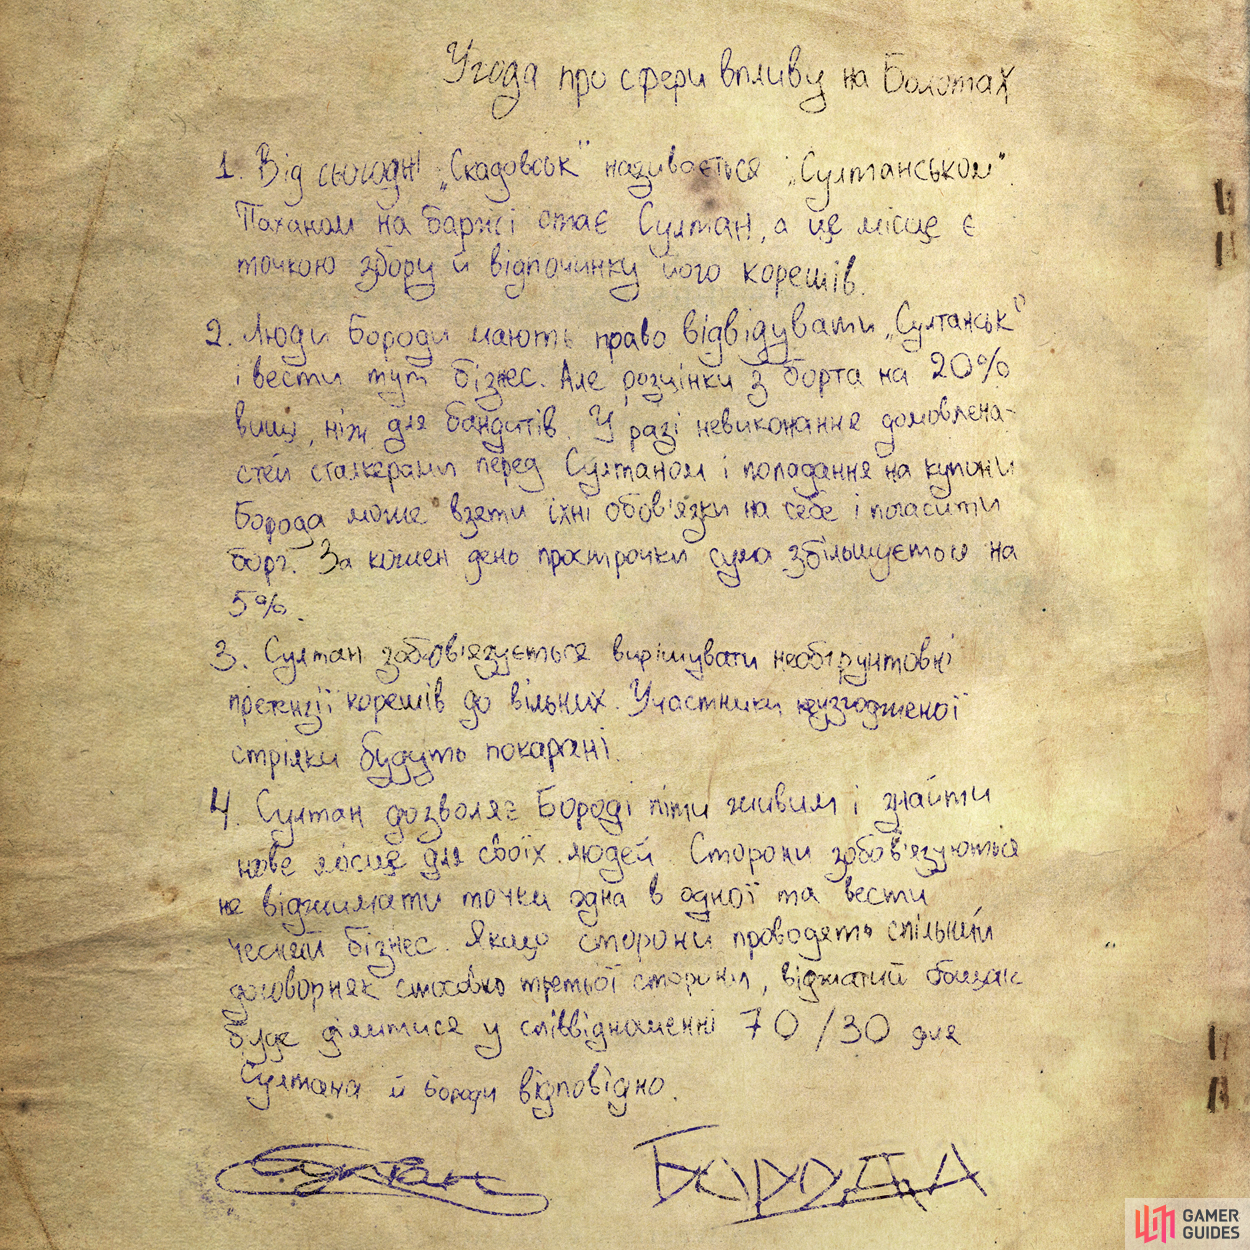 Угода про сфери впливу на Болотах
1. Від сьогодні „Скадовськ" називається „Султанськом".
Паханом на баржі стає Султан, а це місце є
точкою збору й відпочинку його корешів.
2. Люди Бороди мають право відвідувати „Султанськ"
і вести тут бізнес. Але розцінки з борта на 20%
вищі, ніж для бандитів. У разі невиконання домовлена-
стей сталкерами перед Султаном і попадання на купюри
Борода може взяти їхні обов'язки на себе і погасити
борг. За кожен день прострочки сума збільшується на
5%.
3. Султан зобов'язується вирішувати необґрунтовні
претензії корешів до вільних. Участники неузгодженої
стрілки будуть покарані.
4. Султан дозволяє Бороді піти живим і знайти
нове місце для своїх людей. Сторони зобов'язуються
не віджимати точки одна в одної та вести
чесний бізнес. Якщо сторони проводять спільний
договорняк стосовно третьої сторони, віджатий общак
буде ділитися у співвідношенні 70/30 для
Султана й Бороди відповідно.
Султан БОРОДА
GAMER
GUIDES